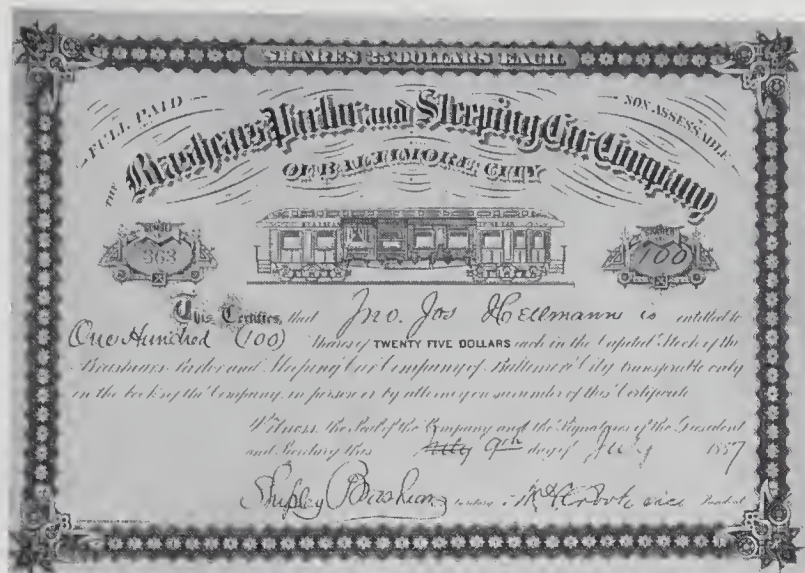 SHARES 25 DOLLARS EACH
FULL PAID
NON ASSESSABLE
THE Brashears Parlor and Sleeping Car Company
OF BALTIMORE CITY
363
SHARES
100
This Certifies, that Jno. Jos Hellmann is entitled to
One Hundred (100) Shares of TWENTY FIVE DOLLARS each in the Capital Stock of the
Brashears Parlor and Sleeping Car Company of Baltimore City transferable only
in the books of the Company, in person or by attorney on surrender of this Certificate
Witness the Seal of the Company and the Signatures of the President
and Secretary this July 9th day of July 1887
Shipley Brashears Secretary vice President